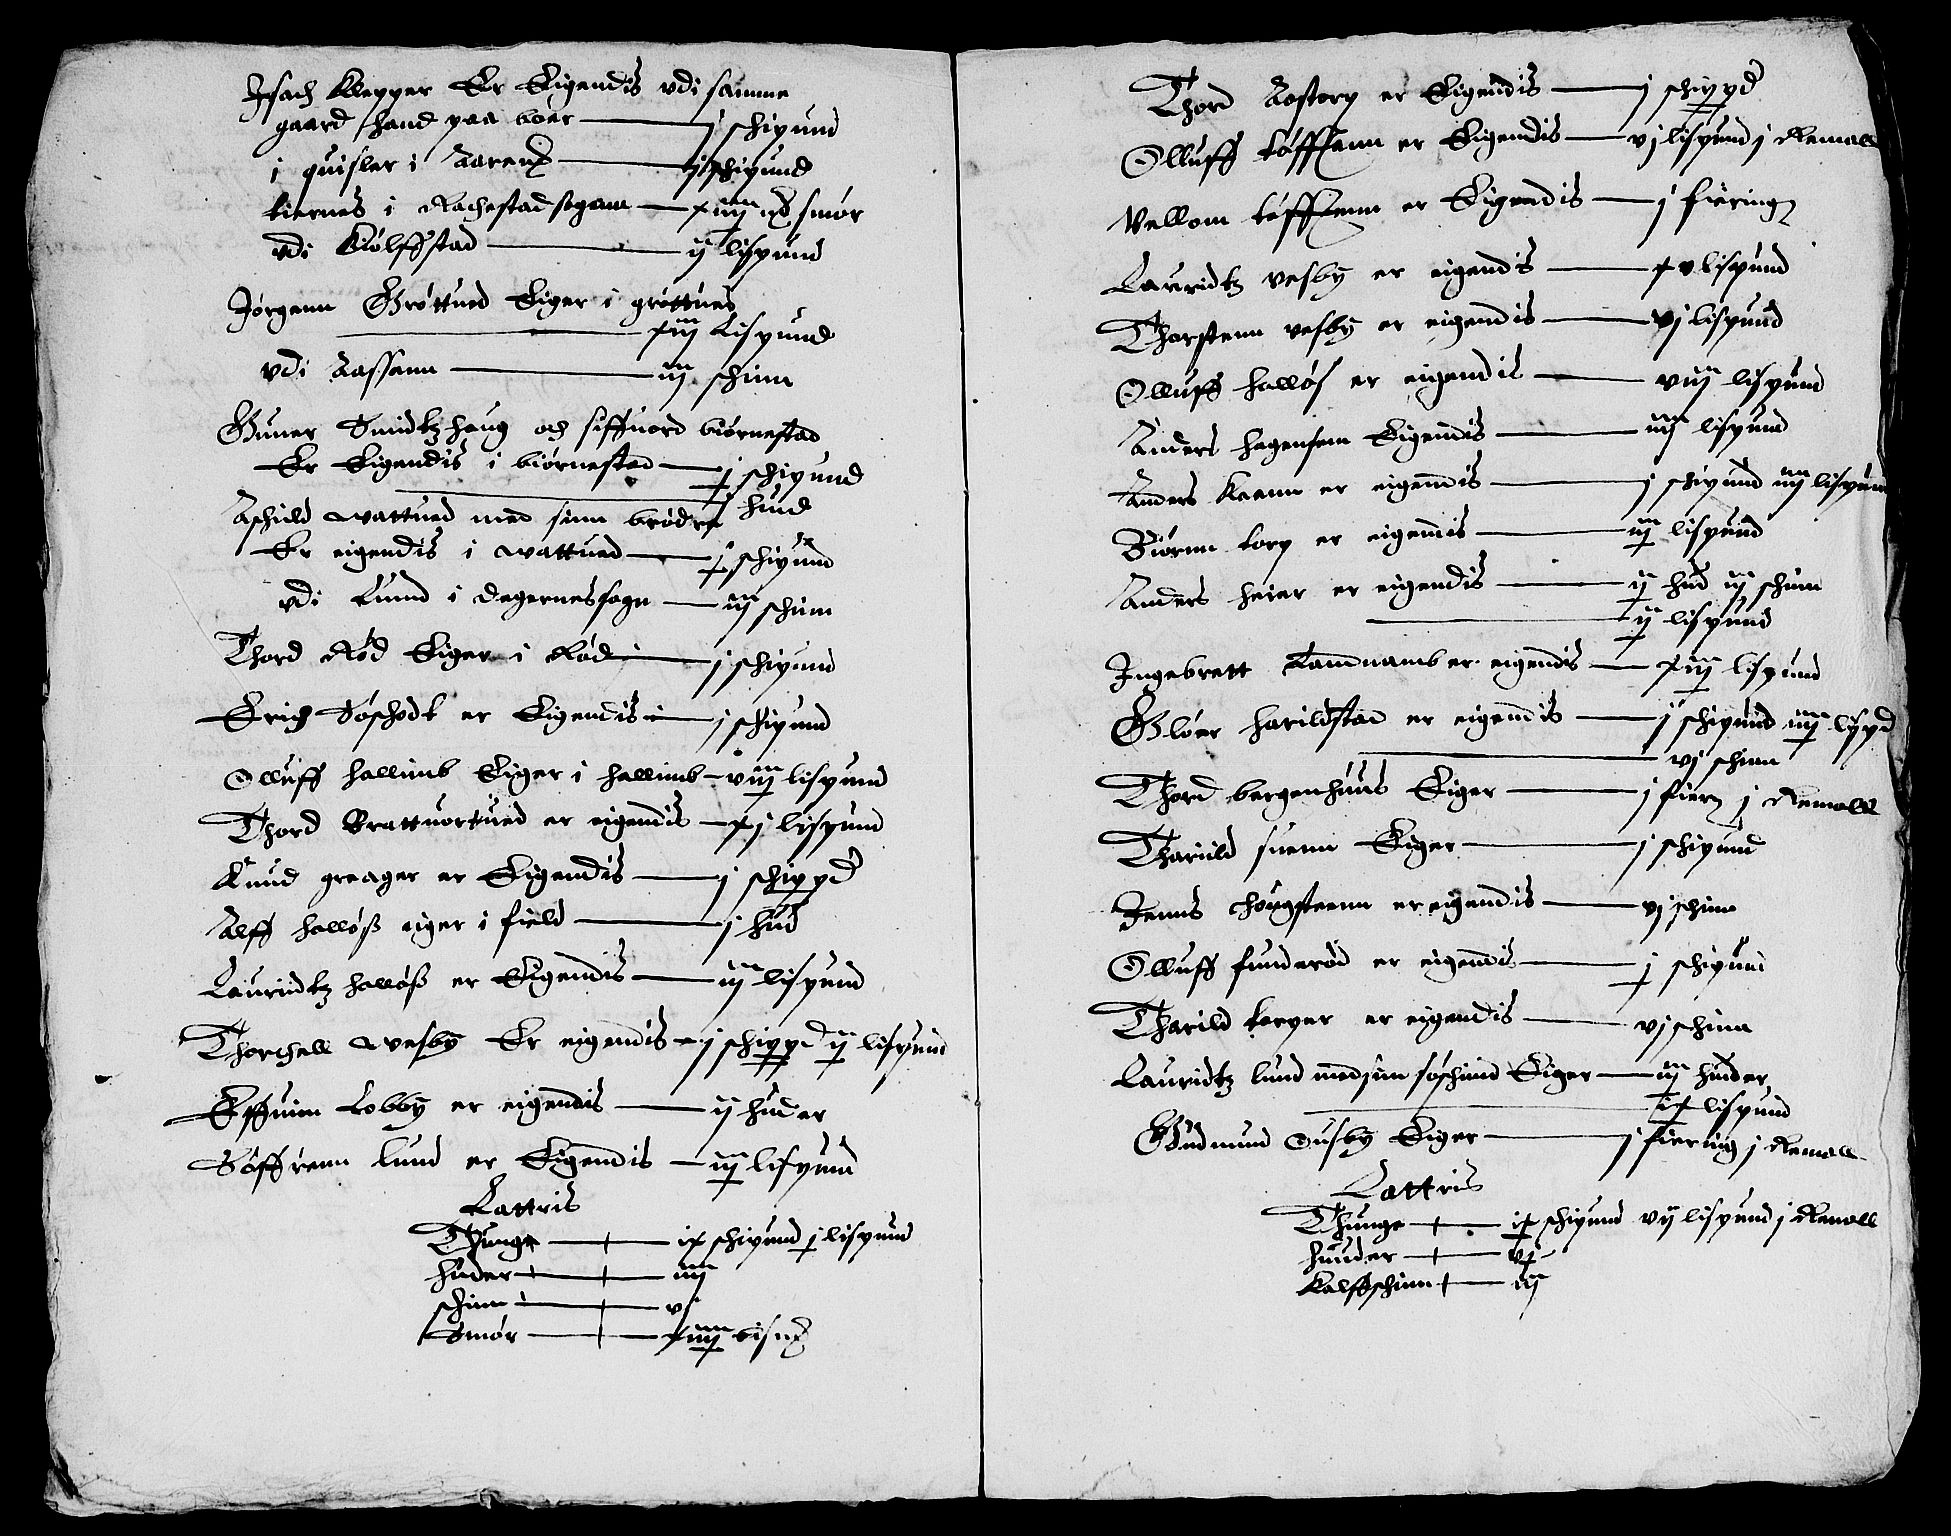 Isach Klepper Er Eigendis vdi samme
gaard hand paa boer — j schipund
i quisler i Aaren — j schipund
tiernes i Rachestad sogenn — xiiij smør
vdi Kiølffstad — ij lispund
Jørgenn Grøttued Eiger i grøttued
— xiij Lispund
vdi Aassenn — iij schinn
Guner Smidtzhaug och siffuord biørnestad
Er Eigendis i biørnestad — j schipund
— j hud
Aschild wattued med sinn brødre
Er eigendis i wattued — j schipund
vdi Lund i degernes sogn — iij schinn
Thord Rød Eiger i Rød — j schipund
Erich Søschodt er Eigendis — j schipund
Olluff hallinnb Eiger i hallinnb — viij lispund
Thord Brattuortued er eigendis — xj lispund
Knud greager er Eigendis — j schippd
Alff halløß eiger i field — j hud
Lauridtz halløß er Eigendis — iij lispund
Thorchell wesby Er eigendis — j schippd ij lispund
Effuinn Lobby er eigendis — ij huder
Søffrenn lund er Eigendis — iij lispund
Lattris
Thunge — ix schipund j lispund
huder — iiij
schinn — vj
Smør — xiiij
Thord Aostorp er Eigendis — j schippd
Olluff tøffsenn er Eigendis — vj lispund j Remall
Vellom tøffsenn er Eigendis — j fiering
Lauridtz vesby er eigendis — xv lispund
Thorstenn vesby er eigendis — vj lispund
Olluff halløs er eigendis — viij lispund
Anders hagensem Eigendis — iiij lispund
Anders Kaann er eigendis — j schipund iiij lispund
Biørnn torp er eigendis — iij lispund
Anders heier er eigendis — ij hud iij schinn
— ij lispund
Ingebrett Landnamb er eigendis — xiij lispund
Gloer harildstad er eigendis — j schipund iiij lispd
— vj schinn
Thord bergenhuus Eiger — j fier j Remall
Tharuld suenn Eiger — j schipund
Jenns hougsteenn er eigendis — vj schinn
Olluff funderød er eigendis — j schipund
Tharild torper er eigendis — vj schinn
Lauridtz lund med sinn søschind Eiger — iij huder
— ix lispund
Gudmund Ousby Eiger — j fiering j Remall
Lattris
Thunge — ix schipund vij lispund j Remall
huuder — vj
Kalffschinn — iij